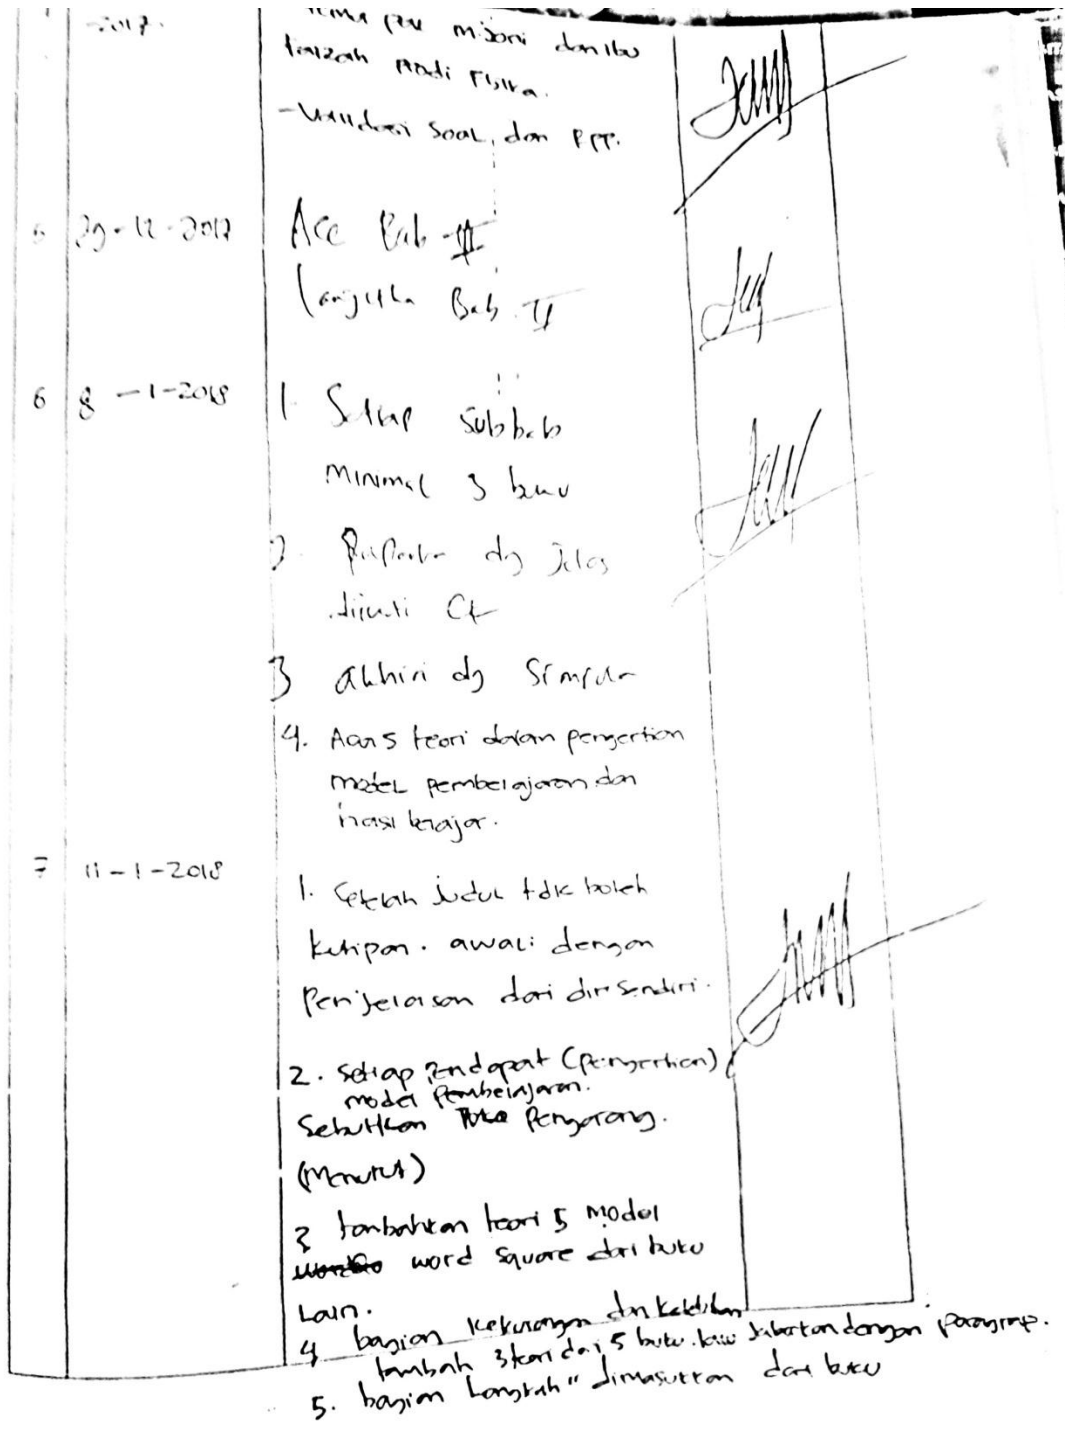 -2017.
dan Ibu
Prodi Fisika.
- Validasi Soal, dan RPP.
29-12-2017
Acc Bab III
Bab II
6 8-1-2018
1. Setiap Subbab
Minimal 3 buku
2. dg Jelas
3 akhiri dg
4. 5 teori dalam pengertian
model pembelajaran dan
hasil belajar.
7 11-1-2018
1. Setelah judul tdk boleh
kutipan. awali dengan
Penjelasan dari diri sendiri.
2. Setiap Pendapat (pengertian)
model Pembelajaran.
Sebutkan Pengarang.
(Menurut)
3 tambahkan teori 5 model
word square dari buku
Lain.
4 bagian kekurangan dan kelebihan
tambah 3 teori dari 5 buku. dengan paragrap.
5. bagian Langkah" dimasukkan dari buku